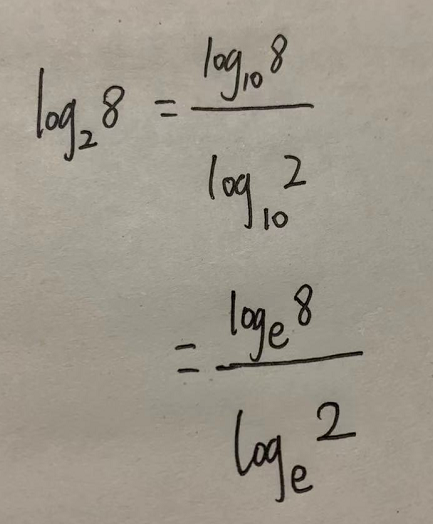 log₂8 = log₁₀8 / log₁₀2
= logₑ8 / logₑ2